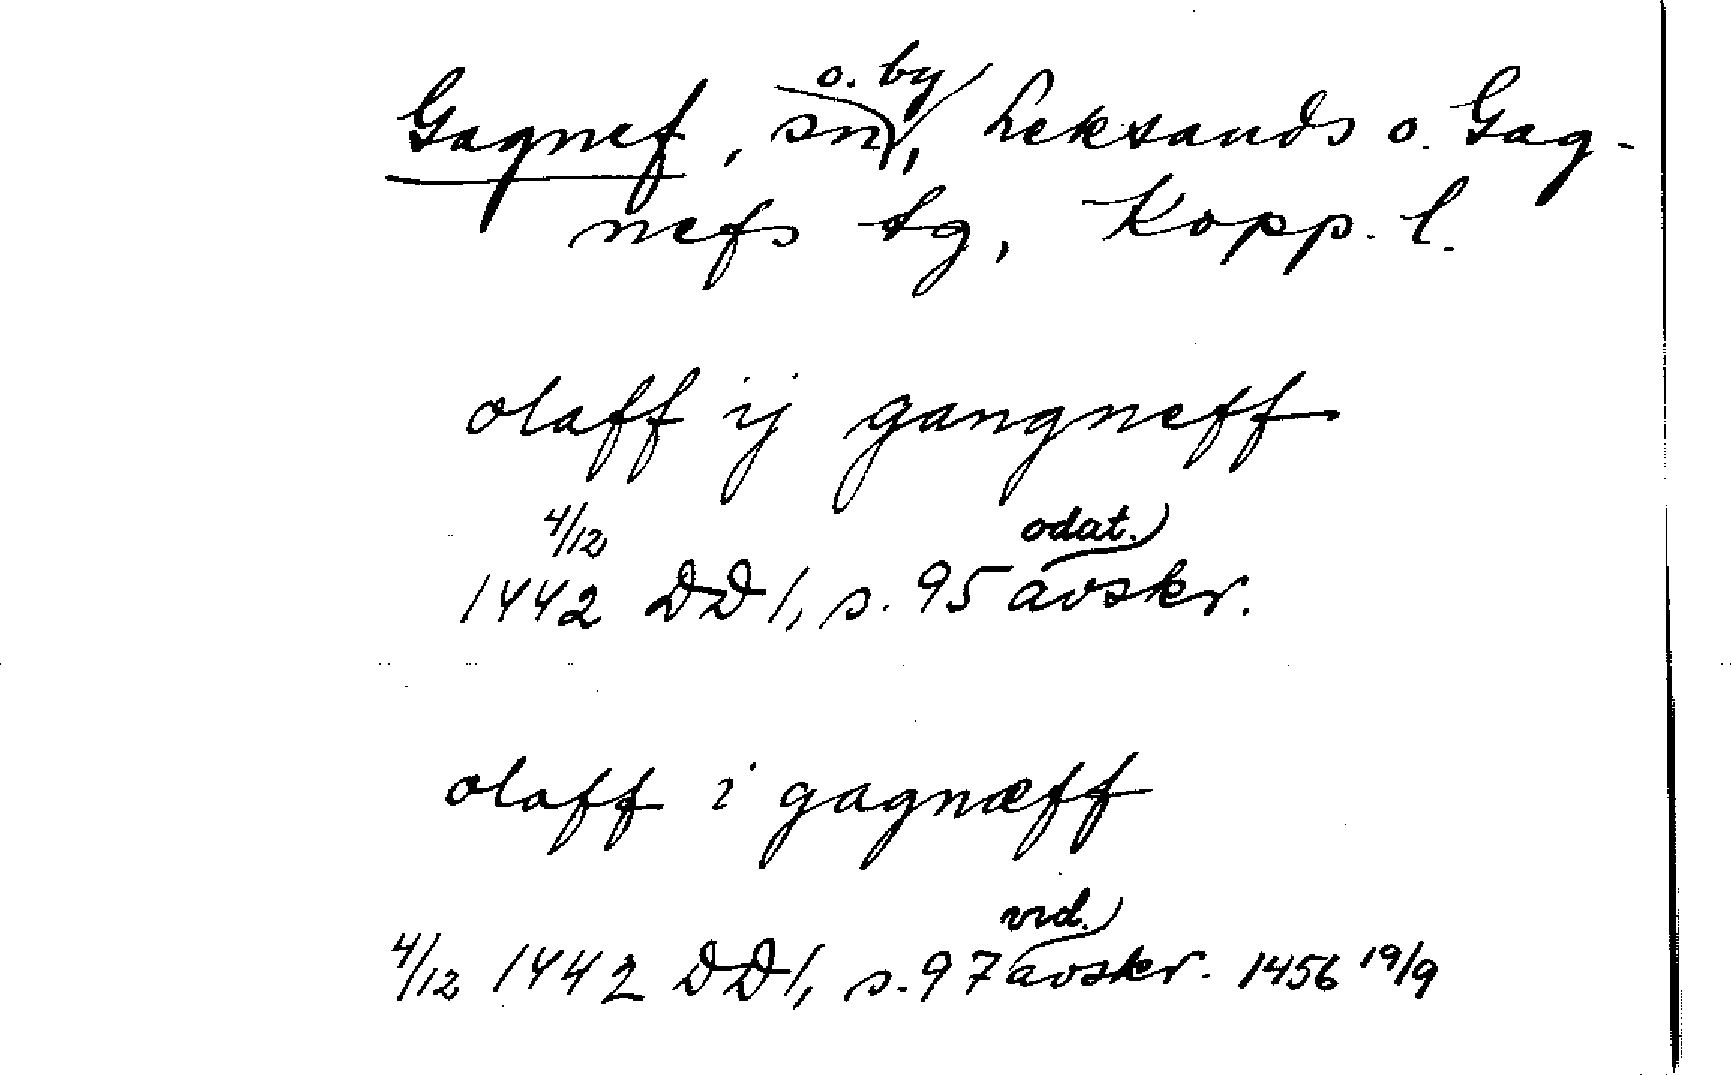 Gagnef, sn o. by, Leksands o. Gag-
nefs tg, Kopp. l.
olaff ij gangneff
4/12
1442 DD 1, s. 95 odat. avskr.
olaff i gagnæff
4/12 1442 DD 1, s. 97 vid. avskr. 1456 19/9